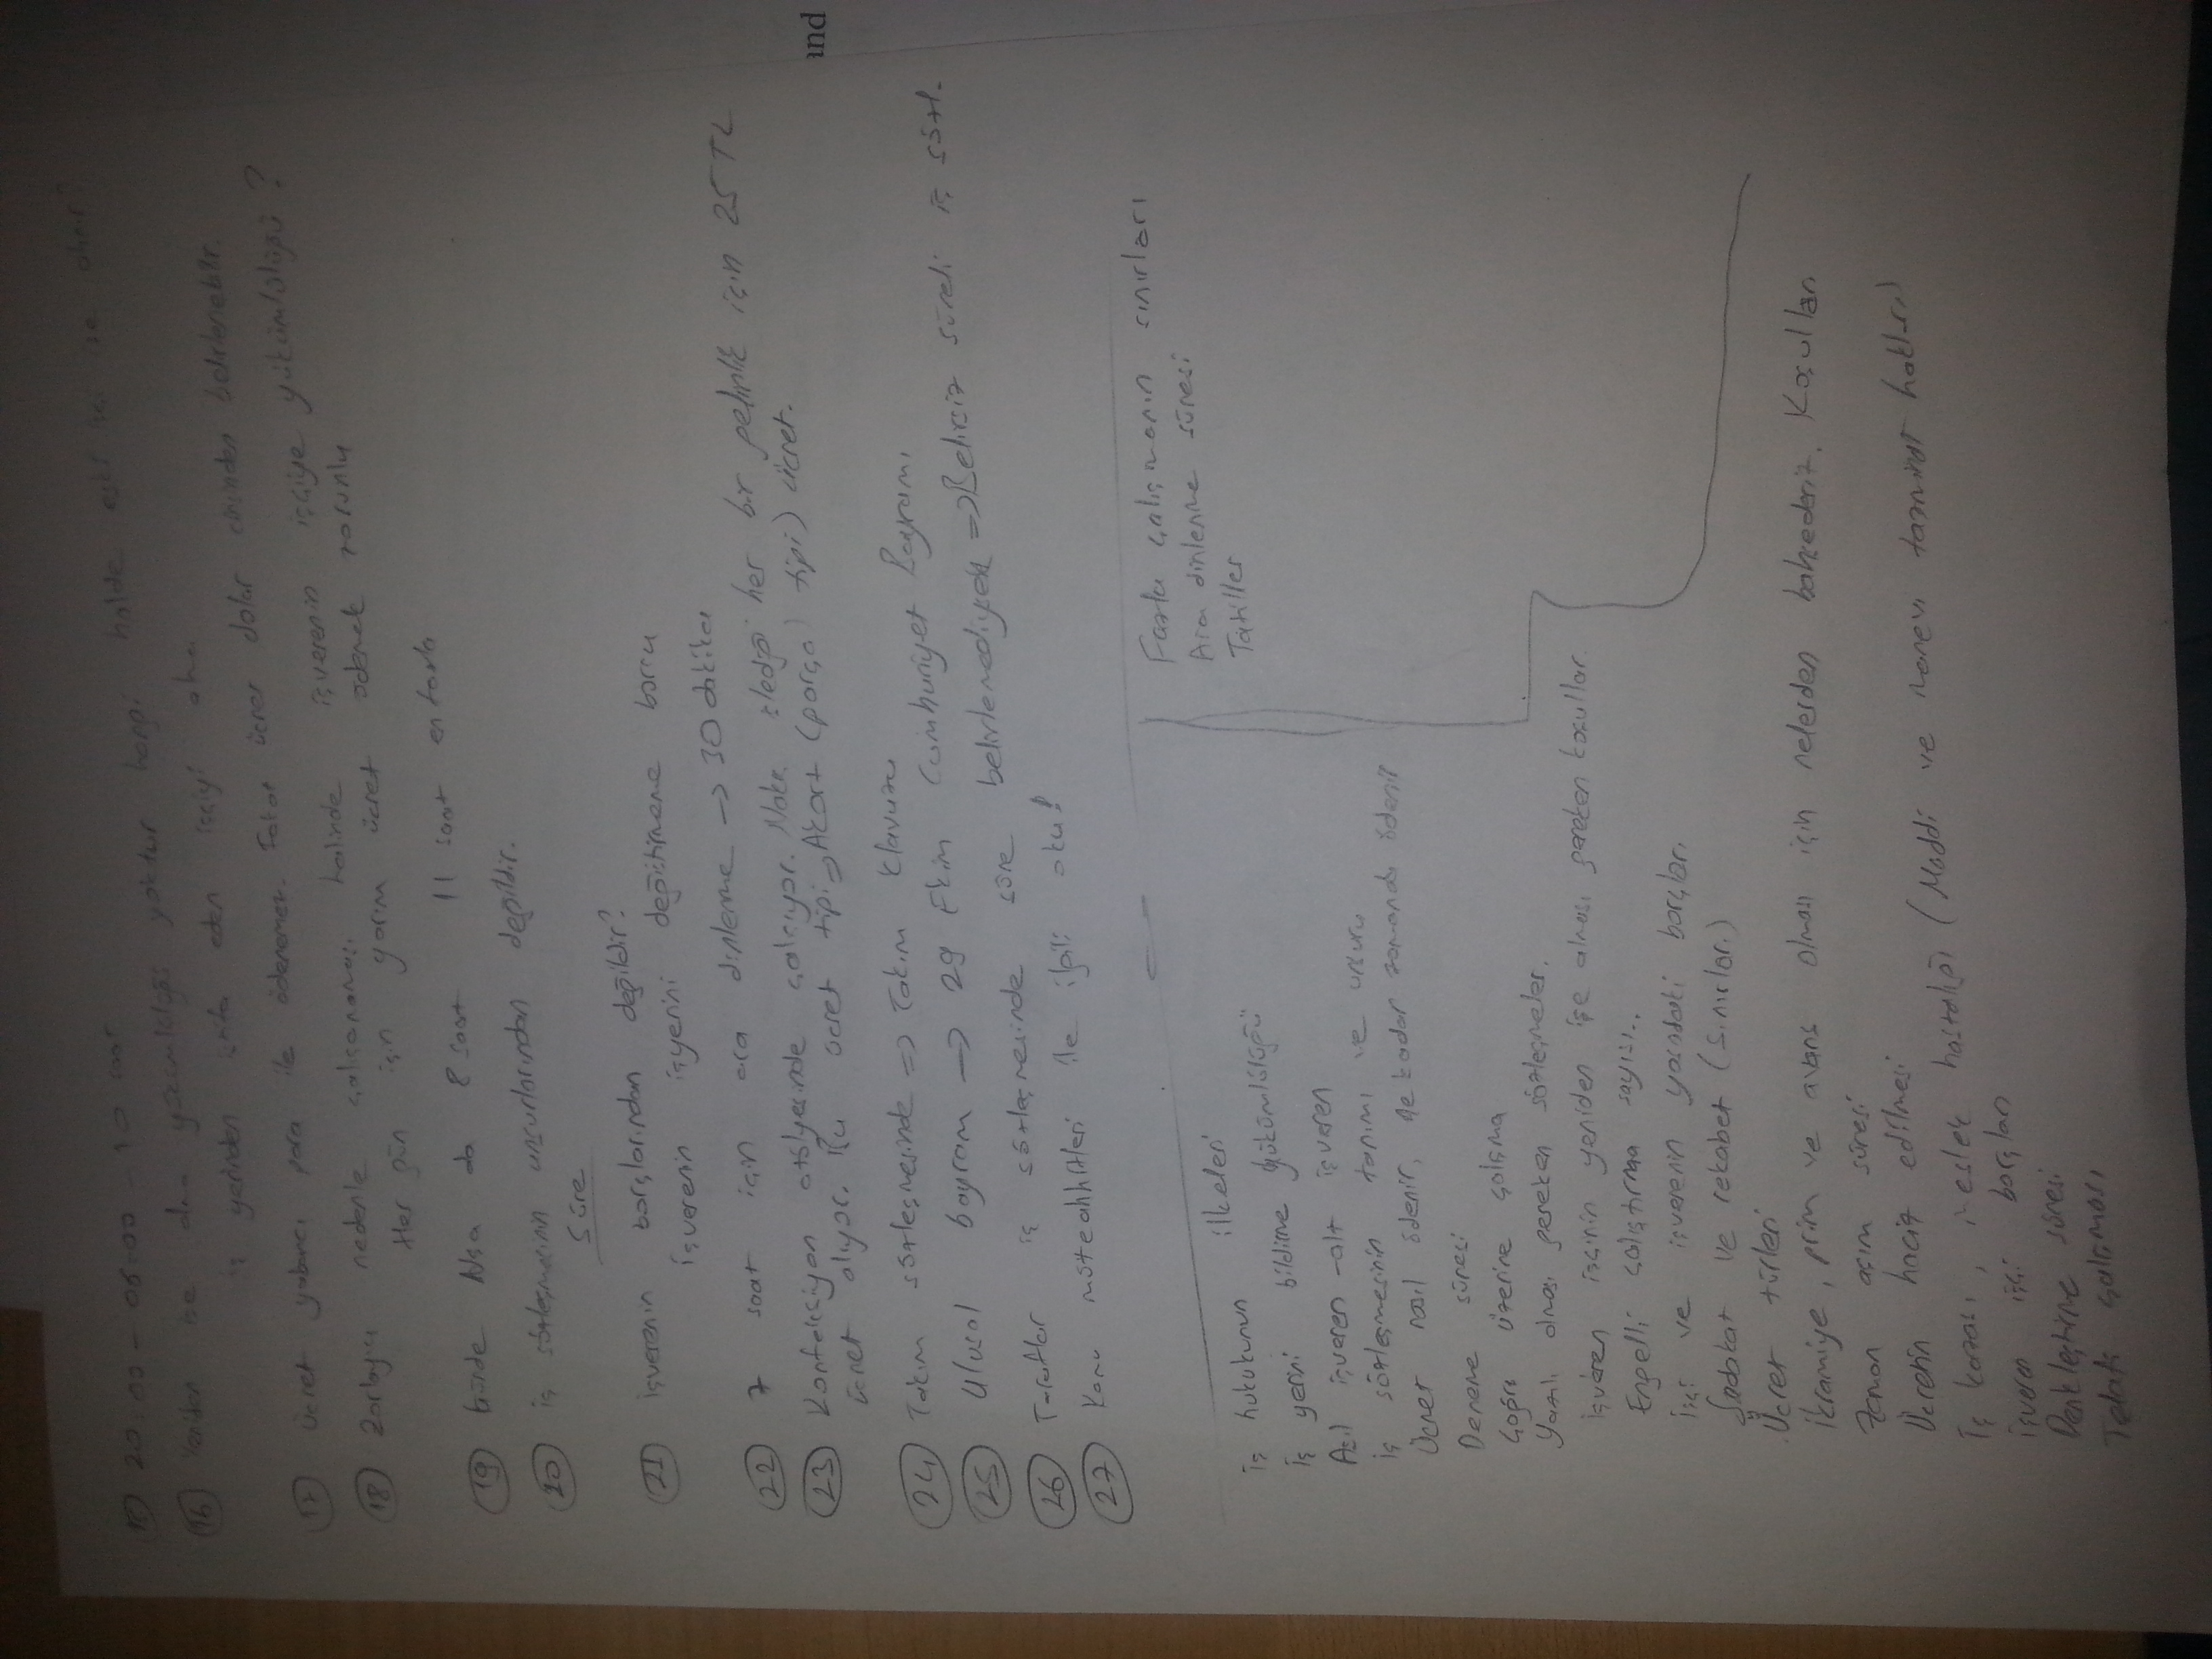 15 20:00 - 06:00 - 10 saat
16 Yeniden işe alma yükümlülüğü yoktur hangi halde eski işçi işe alınır?
iş yerinden istifa eden işçiyi alma
17 Ücret yabancı para ile ödenemez. Fakat ücret dolar cinsinden belirlenebilir.
18 Zorlayıcı nedenle çalışamaması halinde işverenin işçiye yükümlülüğü?
Her gün için yarım ücret ödemek zorunlu
19 Günde 8 saat 11 saat en fazla
20 iş sözleşmesinin unsurlarından değildir.
Süre
21 işverenin borçlarından değildir?
işverenin işyerini değiştirmeme borcu
22 7 saat için ara dinlenme → 30 dakika
23 Konfeksiyon atölyesinde çalışıyor. Nakış işlediği her bir gelinlik için 25 TL
ücret alıyor. Bu ücret tipi → Akort (parça tipi) ücret.
24 Takım sözleşmesinde => Takım klavuzu
25 Ulusal bayram → 29 Ekim Cumhuriyet Bayramı
26 Taraflar iş sözleşmesinde süre belirlemediyse => Belirsiz süreli iş sözl.
27 Kamu müteahhitleri ile ilgili oku!
Fazla çalışmanın sınırları
Ara dinlenme süresi
Tatiller
iş hukukunun ilkeleri
iş yerini bildirme yükümlülüğü
Asıl işveren - alt işveren
iş sözleşmesinin tanımı ve unsuru
Ücret nasıl ödenir, ne kadar zamanda ödenir
Deneme süresi
Çağrı üzerine çalışma
Yazılı olması gereken sözleşmeler.
işveren işçinin yeniden işe alması gereken koşullar.
Engelli çalıştırma sayısı..
işçi ve işverenin yasadaki borçları
Sadakat ve rekabet (Sınırları)
Ücret türleri
ikramiye, prim ve avans olması için nelerden bahsederiz. Koşulları
Zaman aşım süresi
Ücretin haciz edilmesi
iş kazası, meslek hastalığı (Maddi ve manevi tazminat hakları)
işveren işçi borçları
Denkleştirme süresi
Telafi çalışması
and